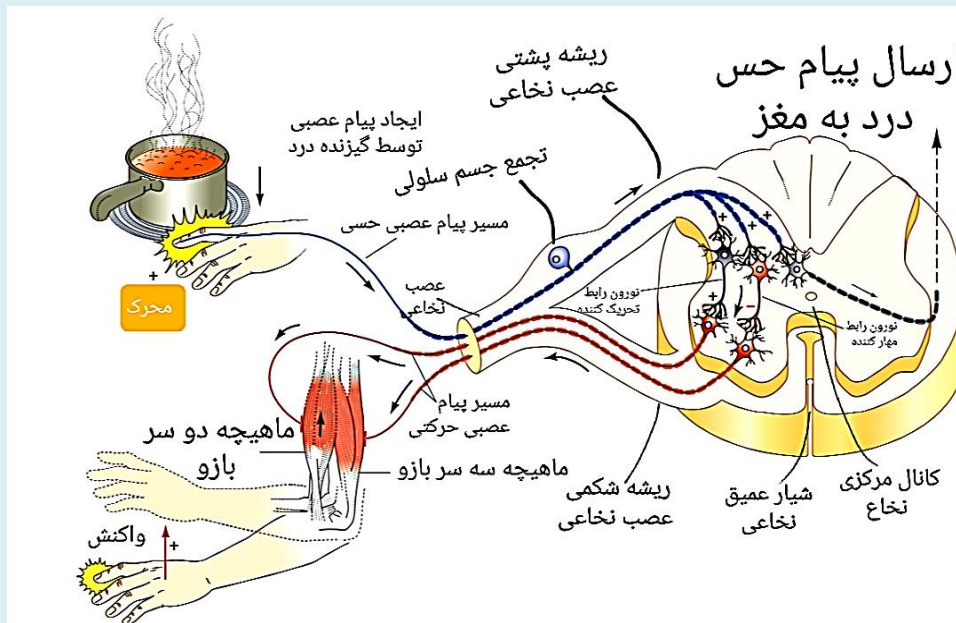 ریشه پشتی
عصب نخاعی
رسال پیام حس
درد به مغز
ایجاد پیام عصبی
توسط گیزنده درد
تجمع جسم سلولی
مسیر پیام عصبی حسی
+
محرک
عصب
نخاعی
+
+
+
نورون رابط
تحریک کننده
+
−
نورون رابط
مهار کننده
مسیر پیام
عصبی حرکتی
ماهیچه دو سر
بازو
ماهیچه سه سر بازو
ریشه شکمی
عصب نخاعی
شیار عمیق
نخاعی
کانال مرکزی
نخاع
واکنش
+